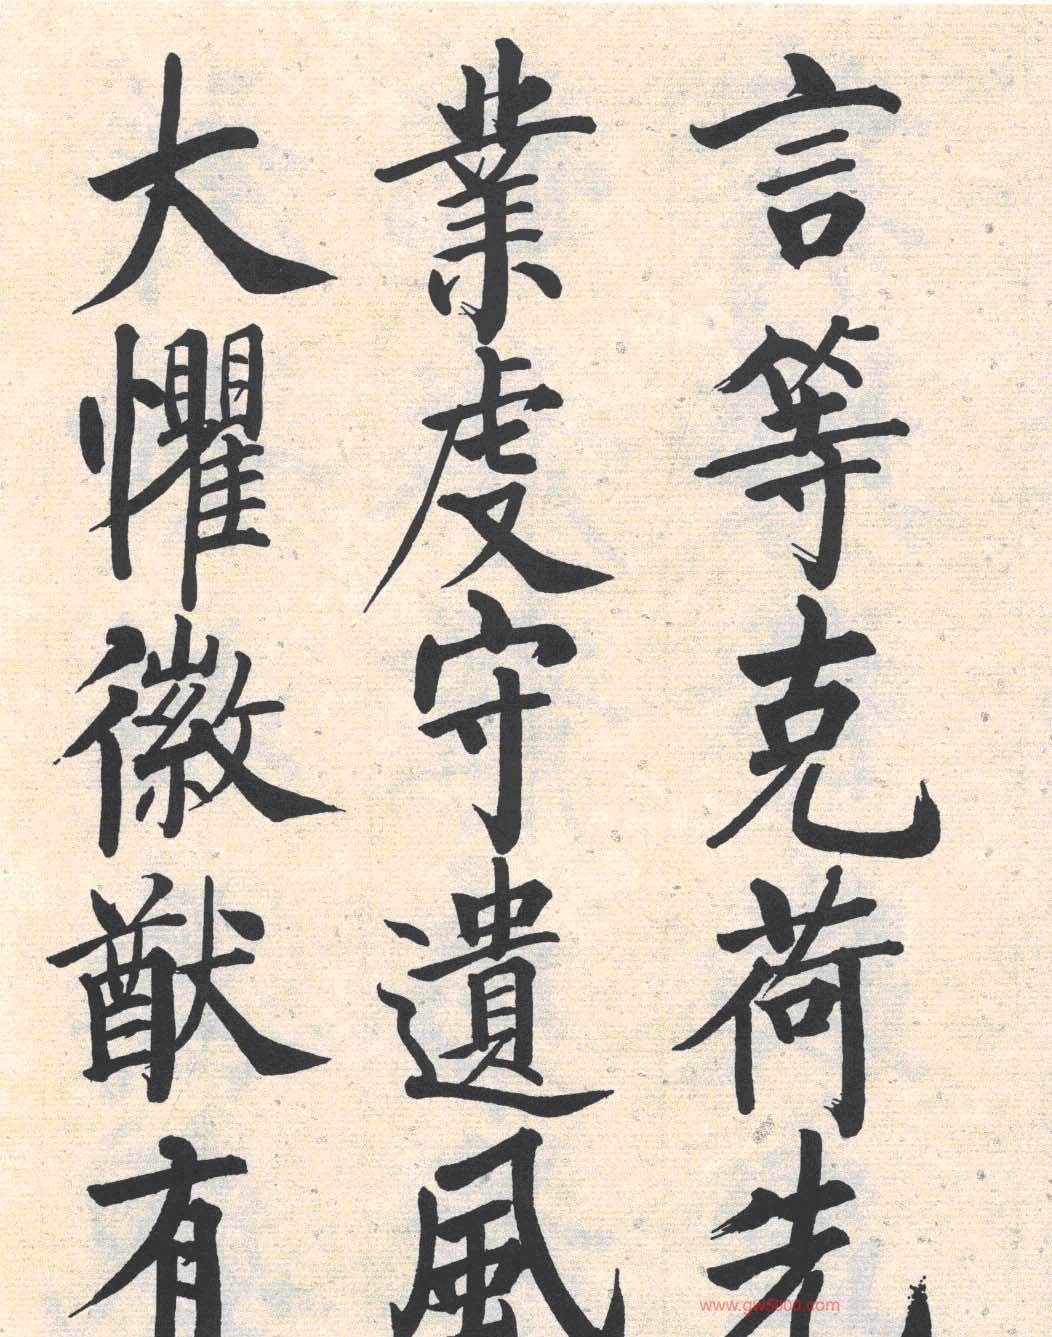 言等克荷先
業虔守遺風
大懼徽猷有
www.gw5000.com